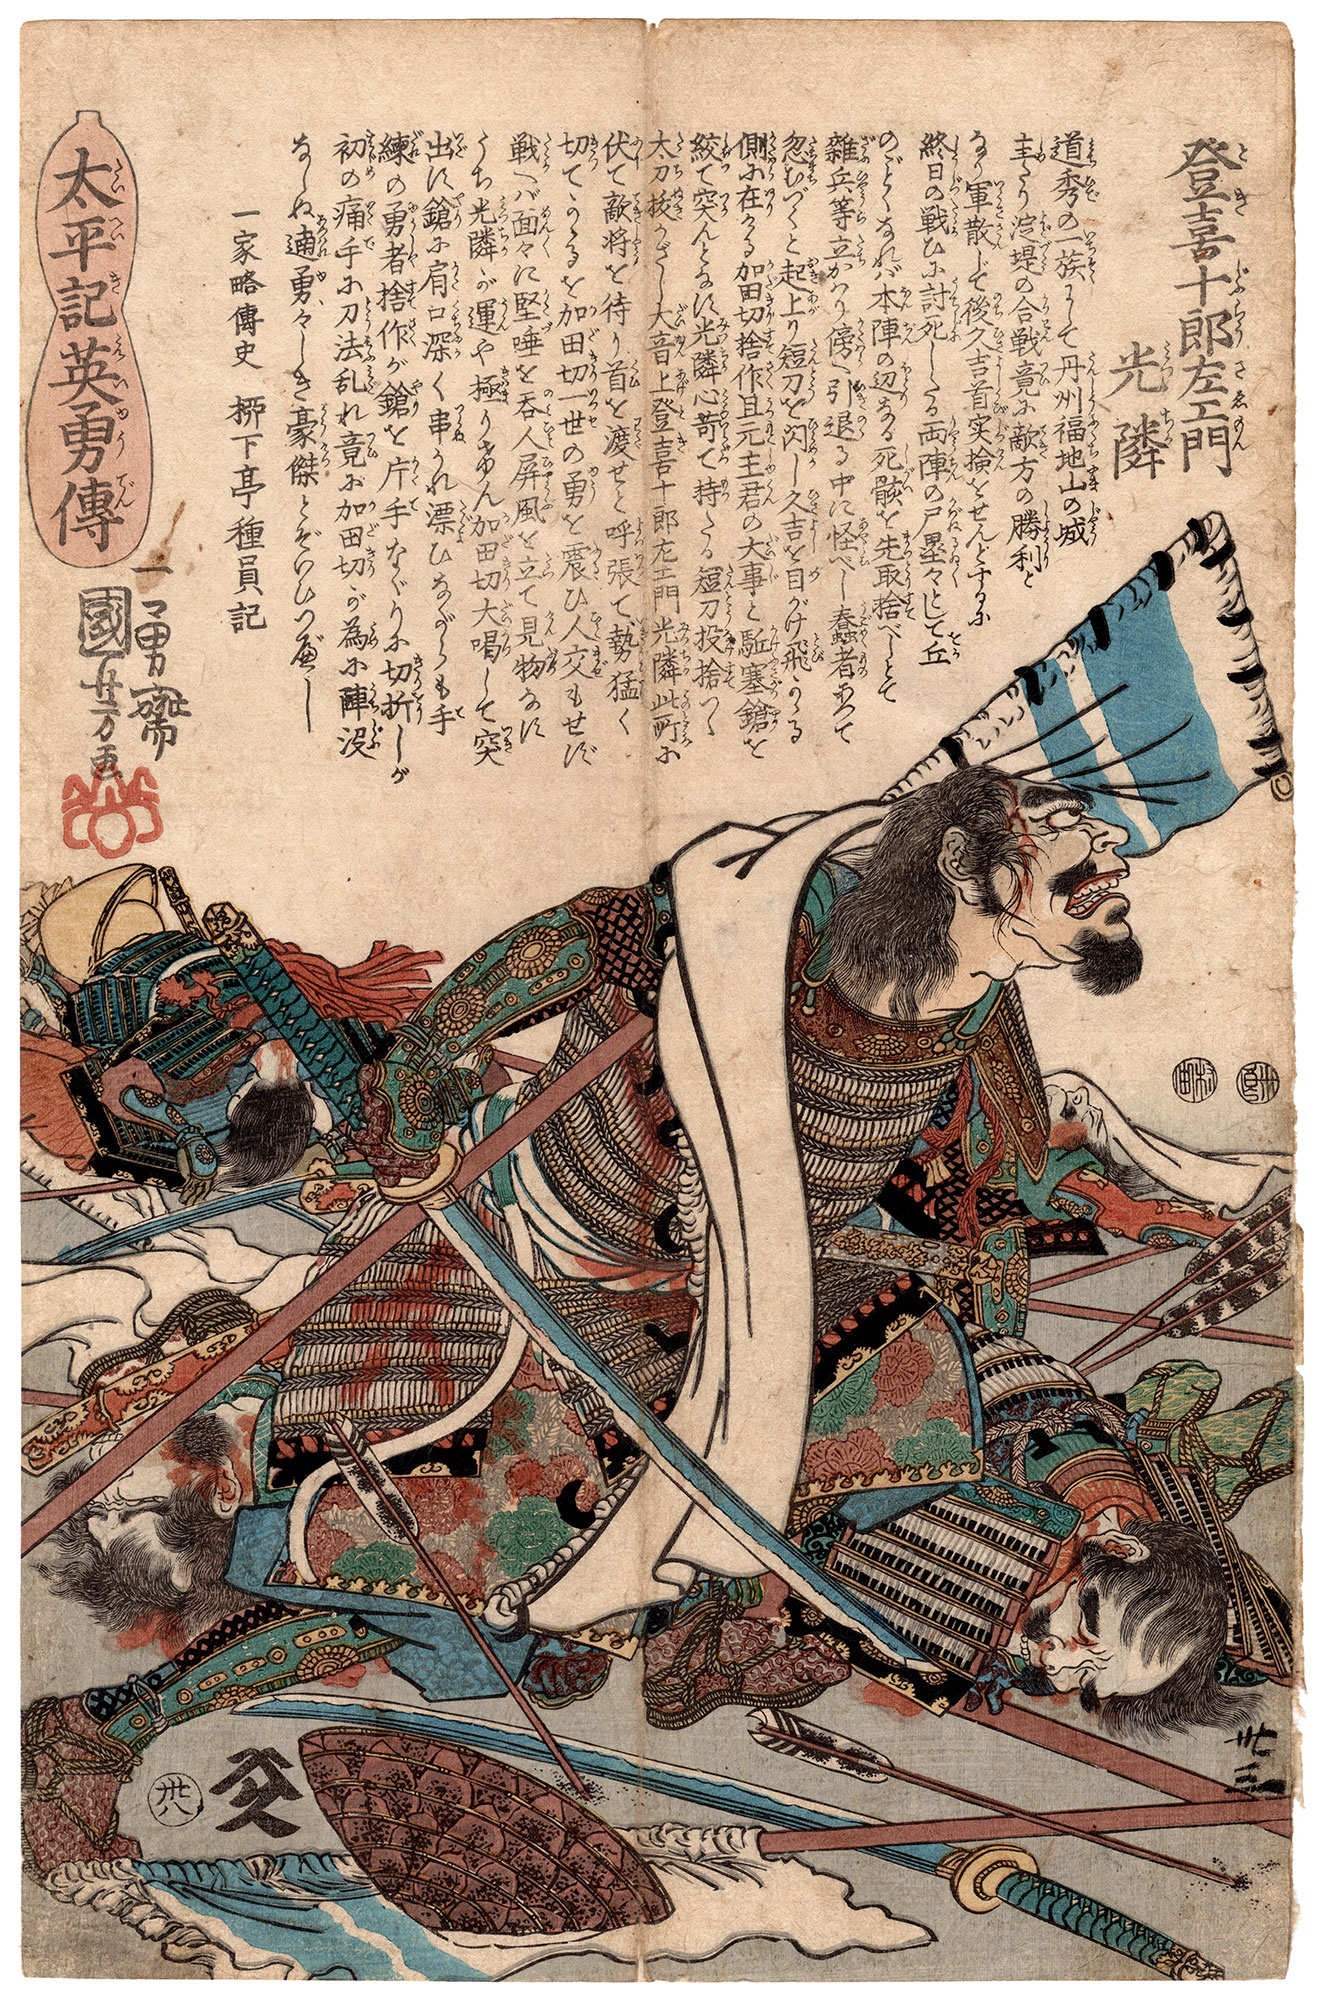 登喜十郎左エ門
光隣
道秀の一族にして丹州福地山の城
主たり淀堤の合戦竟に敵方の勝利と
なり軍散じて後久吉首実検をせんとするに
終日の戦ひに討死したる両陣の尸塁々として丘
のごとくなれバ本陣の辺なる死骸を先取捨べしとて
雑兵等立かゝり傍へ引退る中に怪べし蠢者あつて
忽むづくと起上り短刀を閃し久吉を目がけ飛かゝる
側に在ける加田切捨作且元主君の大事と駈塞鎗を
絞て突んとなすに光隣心苛て持たる短刀投捨つゝ
太刀抜かざし大音上登喜十郎左エ門光隣此所に
伏て敵将を待り首を渡せと呼張て勢猛く
切てかゝるを加田切一世の勇を震ひ人交もせず
戦へバ面々に堅唾を呑人屏風を立て見物なす
うち光隣が運や極りけん加田切大喝して突
出す鎗に肩口深く串かれ漂ひながらも手
練の勇者捨作が鎗を片手なぐりに切折しが
初の痛手に刀法乱れ竟に加田切が為に陣没
なしぬ遖勇々しき豪傑とぞいひつべし
一家略傳史 柳下亭種員記
太平記英勇傳
一勇齋
國芳画
村田
平
卅三
卅八